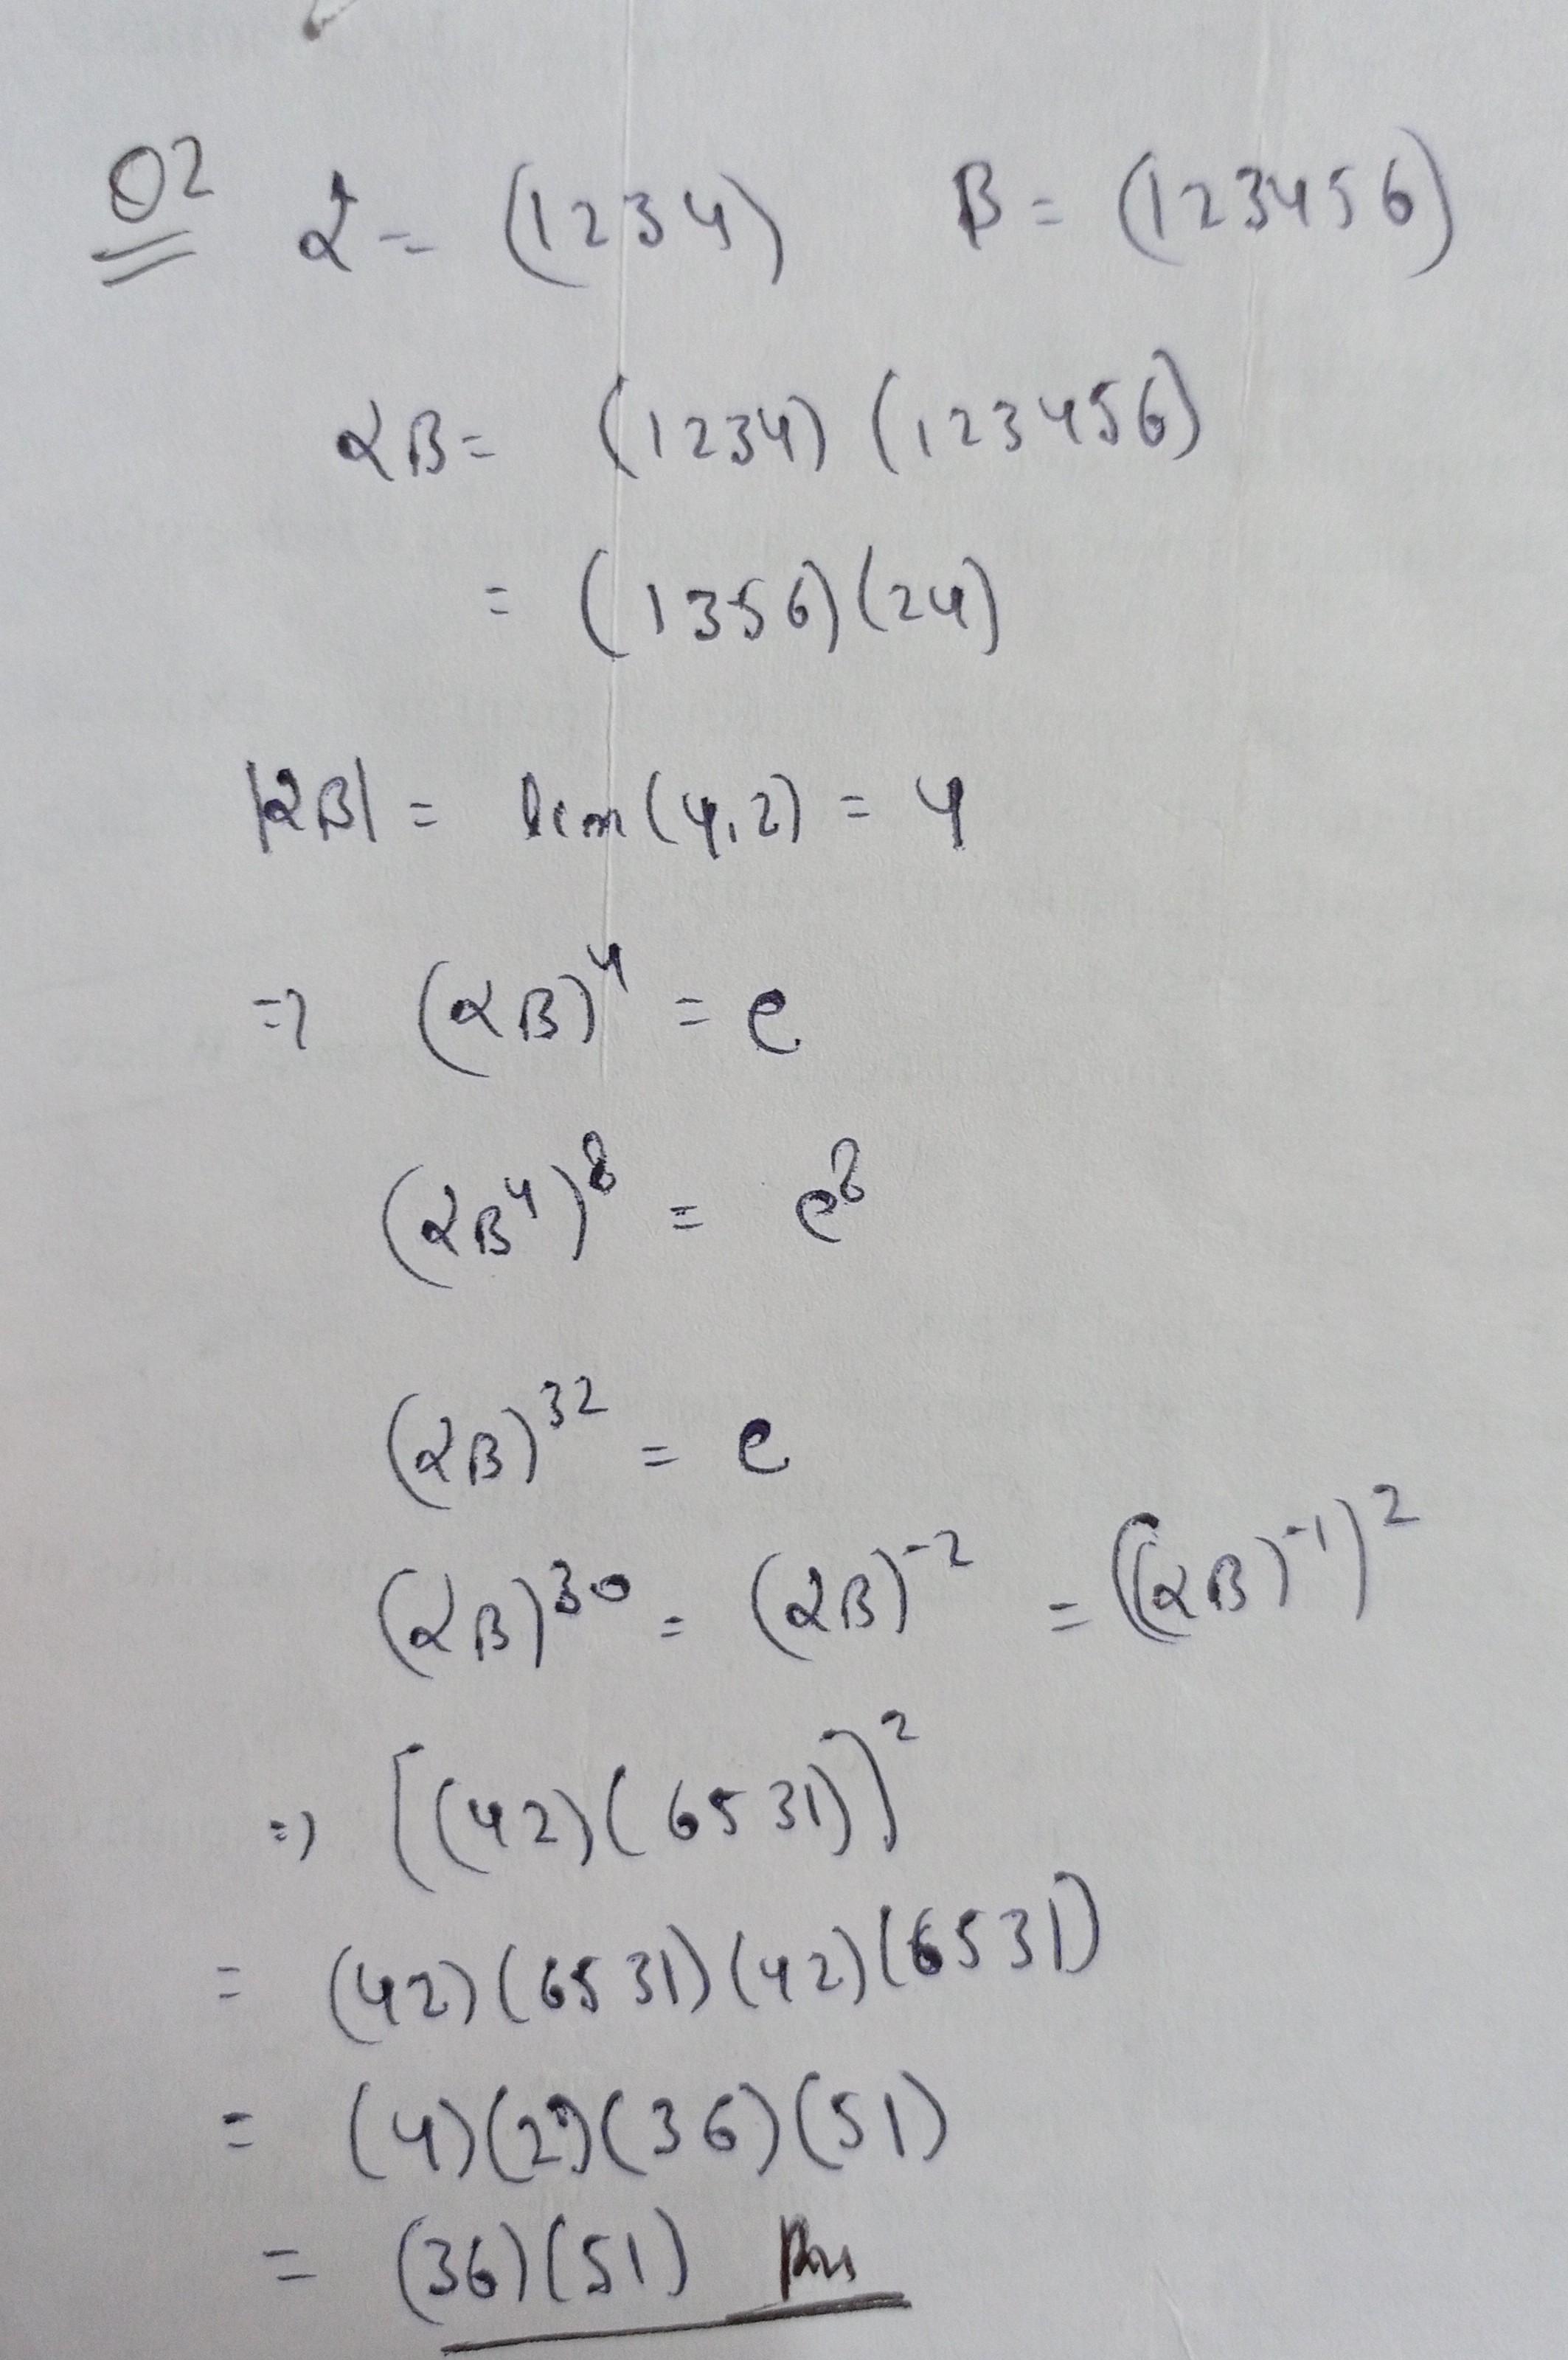 Q2 α = (1234) β = (123456)
αβ = (1234) (123456)
= (1356)(24)
|αβ| = lcm(4,2) = 4
⇒ (αβ)⁴ = e
(αβ⁴)⁸ = e⁸
(αβ)³² = e
(αβ)³⁰ = (αβ)⁻² = ((αβ)⁻¹)²
⇒ [(42)(6531)]²
= (42)(6531)(42)(6531)
= (4)(2)(36)(51)
= (36)(51) Ans